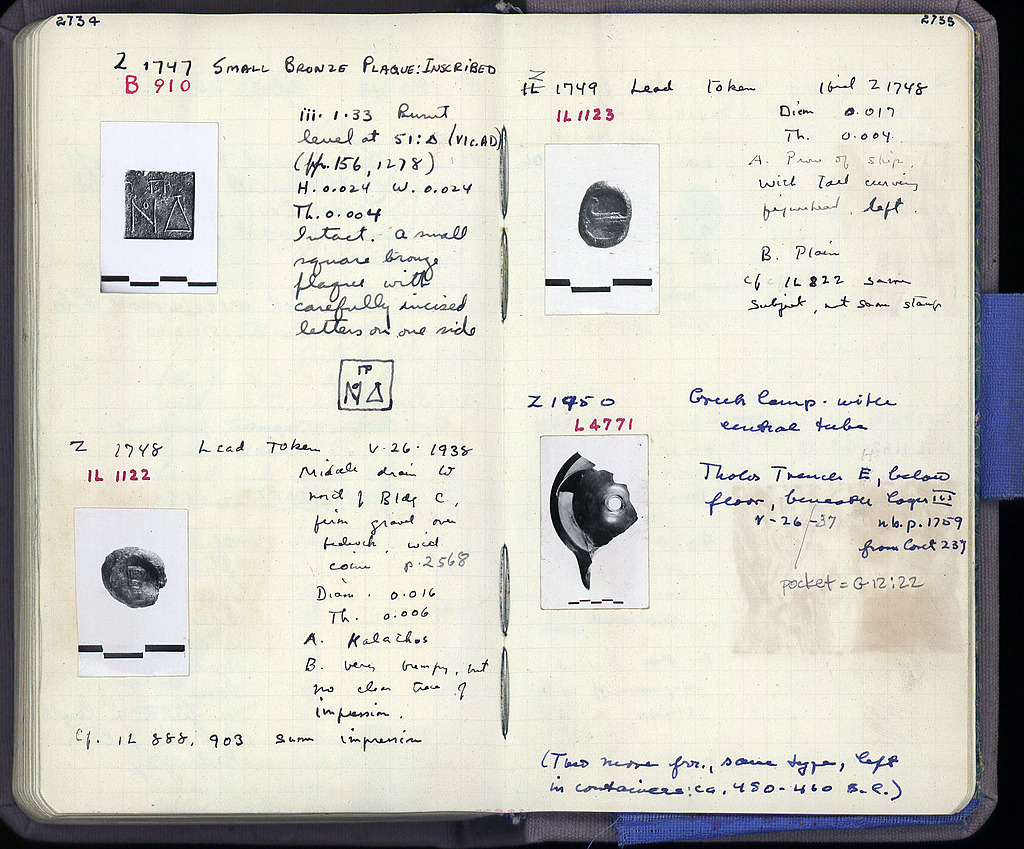 2734
Z 1747 SMALL BRONZE PLAQUE: INSCRIBED
B 910
iii. 1. 33 Burnt
level at 51:Δ (VI c. AD)
(pp. 156, 1278)
H. 0.024 W. 0.024
Th. 0.004
Intact. A small
square bronze
plaque with
carefully incised
letters on one side
ΓΡ
N° Δ
Z 1748 Lead Token V·26·1938
IL 1122
Middle drain W
nord of Bldg C,
firm gravel over
bedrock, with
coin p. 2568
Diam. 0.016
Th. 0.006
A. Kalathos
B. very bumpy, but
no clear trace of
impression.
Cf. IL 888, 903 same impression
2735
Z 1749 Lead Token ibid Z 1748
IL 1123
Diam 0.017
Th. 0.004.
A. Prow of ship,
with tail curving
left.
B. Plain
cf IL 822 same
subject, not same stamp
Z 1950 Greek lamp with
central tube
L 4771
Tholos Trench H E, below
floor, beneath layer III
V-26-37 nb. p. 1759
from Cont 237
pocket = G 12:22
(Two more frr., same type, left
in containers: ca. 480-460 B.C.)